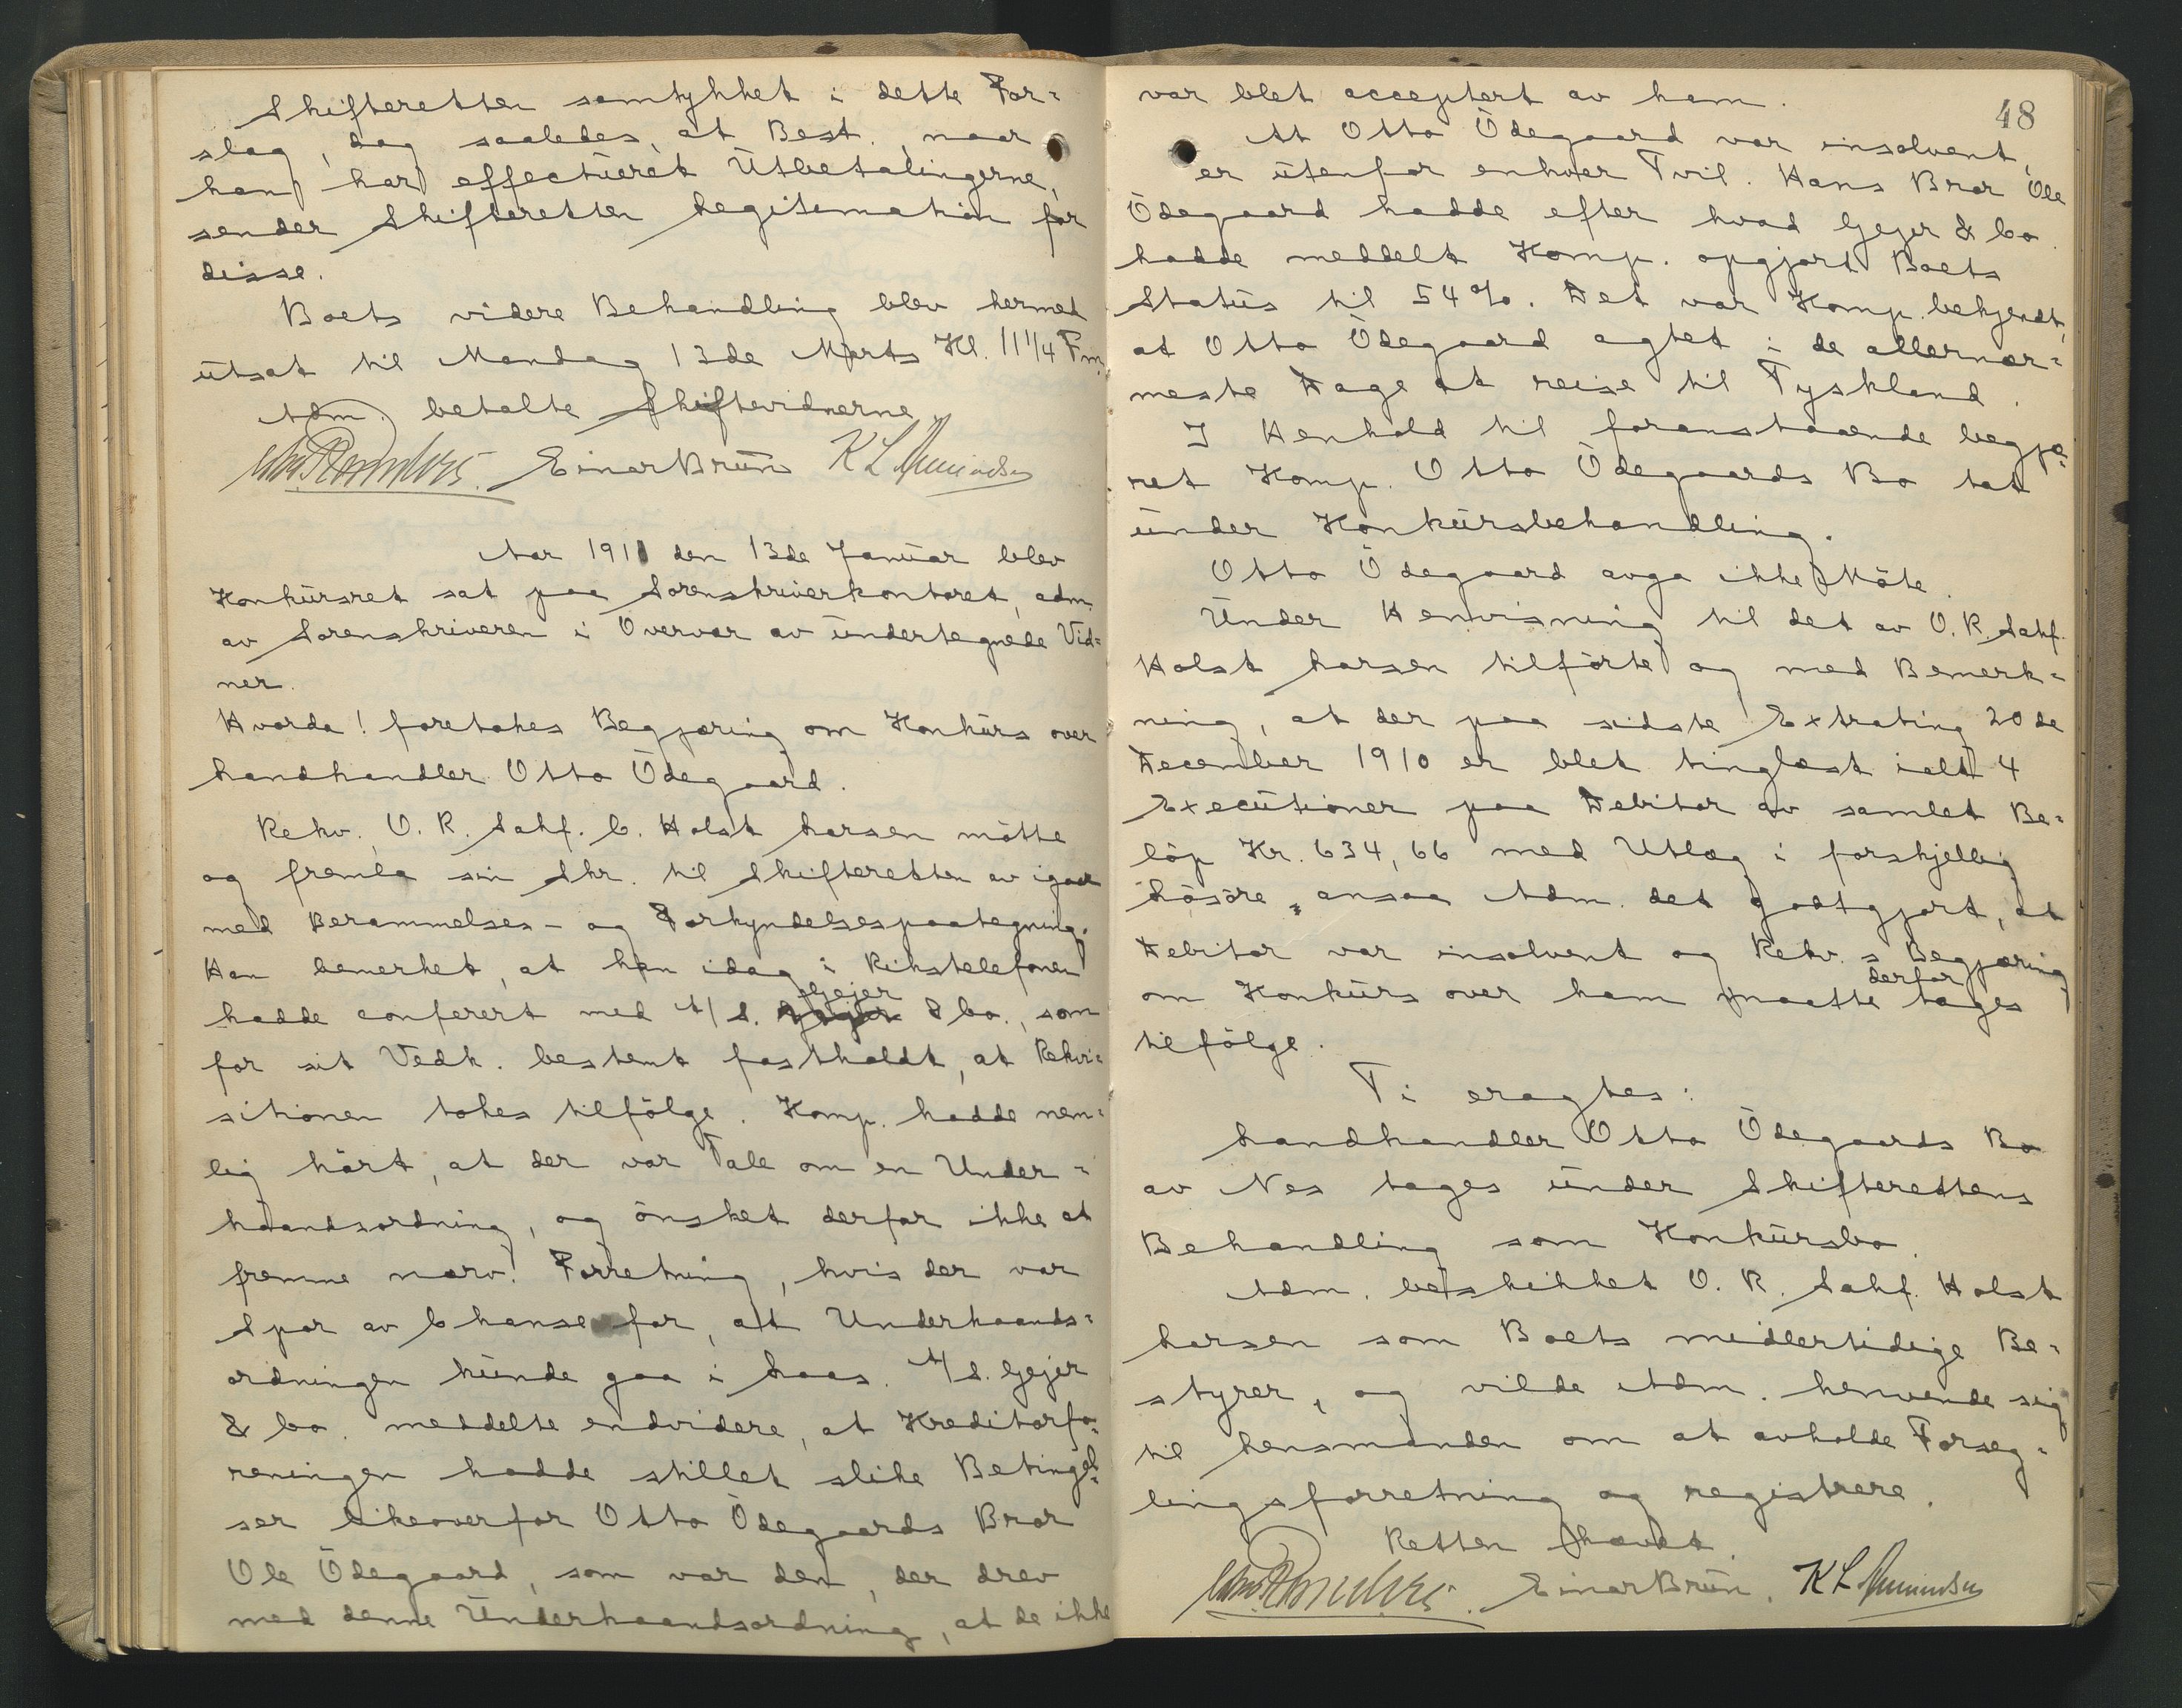 Skifteretten samtykket i dette For=
slag, dog saaledes, at Best., naar
han har effectueret Utbetalingerne,
sender Skifteretten Legitimation for
disse.
Boets videre Behandling blev hermed
utsat til Mandag 13de Marts Kl. 11 1/4 Fm.
Adm. betalte Skiftevidnerne.
Einar Brun K L Amundsen
Aar 1911 den 13de Januar blev
Konkursret sat paa Sorenskriverkontoret, adm.
av Sorenskriveren i Overvær av undertegnede Vid=
ner.
Hvorda! foretokes Begjæring om Konkurs over
Landhandler Otto Ödegaard.
Rekv. O. R. Sakf. C. Holst Larsen mötte
og fremla sin Skr. til Skifteretten av igaar
med Berammelses- og Forkyndelsespaategning.
Han bemerket, at han idag i Rikstelefonen
hadde conferert med A/S. Gejer & Co., som
for sit Vedk. bestemt fastholdt, at Rekvi=
sitionen tokes tilfölge. Komp. hadde nem=
lig hört, at der var Tale om en Under=
haandsordning, og önsket derfor ikke at
fremme nærv. Forretning, hvis der var
Spor av Chanse for, at Underhaands=
ordningen kunde gaa i Laas. A/S. Gejer
& Co. meddelte endvidere, at Kreditorfo=
reningen hadde stillet slike Betingel=
ser likeoverfor Otto Ödegaards Bror
Ole Ödegaard, som var den, der drev
med denne Underhaandsordning, at de ikke
48
var blet acceptert av ham.
At Otto Ödegaard var insolvent,
er utenfor enhver Tvil. Hans Bror Ole
Ödegaard hadde efter hvad Gejer & Co.
hadde meddelt Komp. opgjort Boets
Status til 54 %. Det var Komp. bekjendt,
at Otto Ödegaard agtet i de allernær=
meste Dage at reise til Tyskland.
I Henhold til foranstaaende begjæ=
ret Komp. Otto Ödegaards Bo tat
under Konkursbehandling.
Otto Ödegaard avga ikke Möte.
Under Henvisning til det av O. R. Sakf.
Holst Larsen tilförte og med Bemerk=
ning, at der paa sidste Extrating 20de
December 1910 er blet tinglæst ialt 4
Executioner paa Debitor av samlet Be=
löp Kr. 634,66 med Utlæg i forskjellig
Lösöre, ansaa Adm. det godtgjort, at
Debitor var insolvent og Rekv.s Begjæring
om Konkurs over ham maatte derfor tages
tilfölge.
Ti eragtes:
Landhandler Otto Ödegaards Bo
av Nes tages under Skifterettens
Behandling som Konkursbo.
Adm. beskikket O. R. Sakf. Holst
Larsen som Boets midlertidige Be=
styrer, og vilde Adm. henvende sig
til Lensmanden om at avholde Forseg=
lingsforretning og registrere.
Retten hævet.
Einar Brun. K L Amundsen